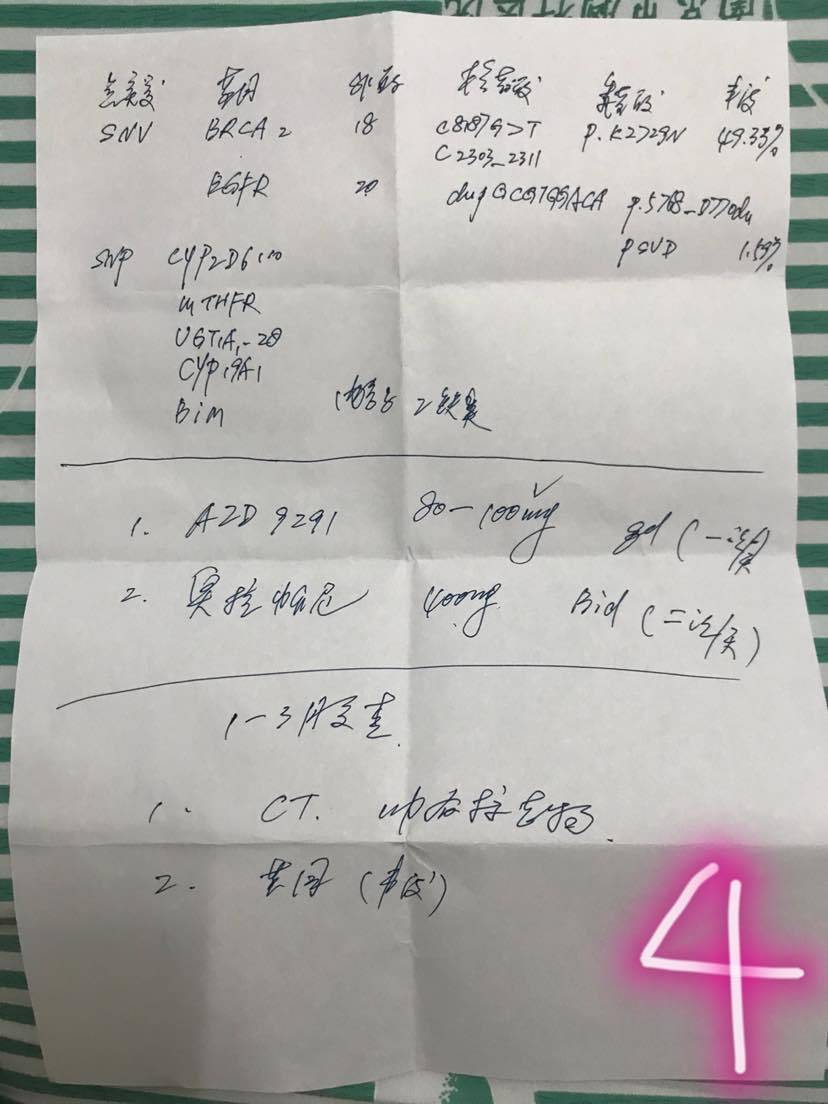 基因 外显 核苷酸 氨基酸 丰度
SNV BRCA2 18 c8187G>T p.K2729N 49.33%
C2303_2311
EGFR 20 dupGCGTGGACA p.S768_D770du
SNP CYP2D6*10 pSVD 1.59%
MTHFR
UGT1A1-28
CYP19A1
BiM 2缺失
1. AZD9291 80-100mg qd (一次/天)
2. 奥拉帕尼 400mg. Bid (二次/天)
1-3月复查.
1. CT. 标志物.
2. 基因(丰度)
4